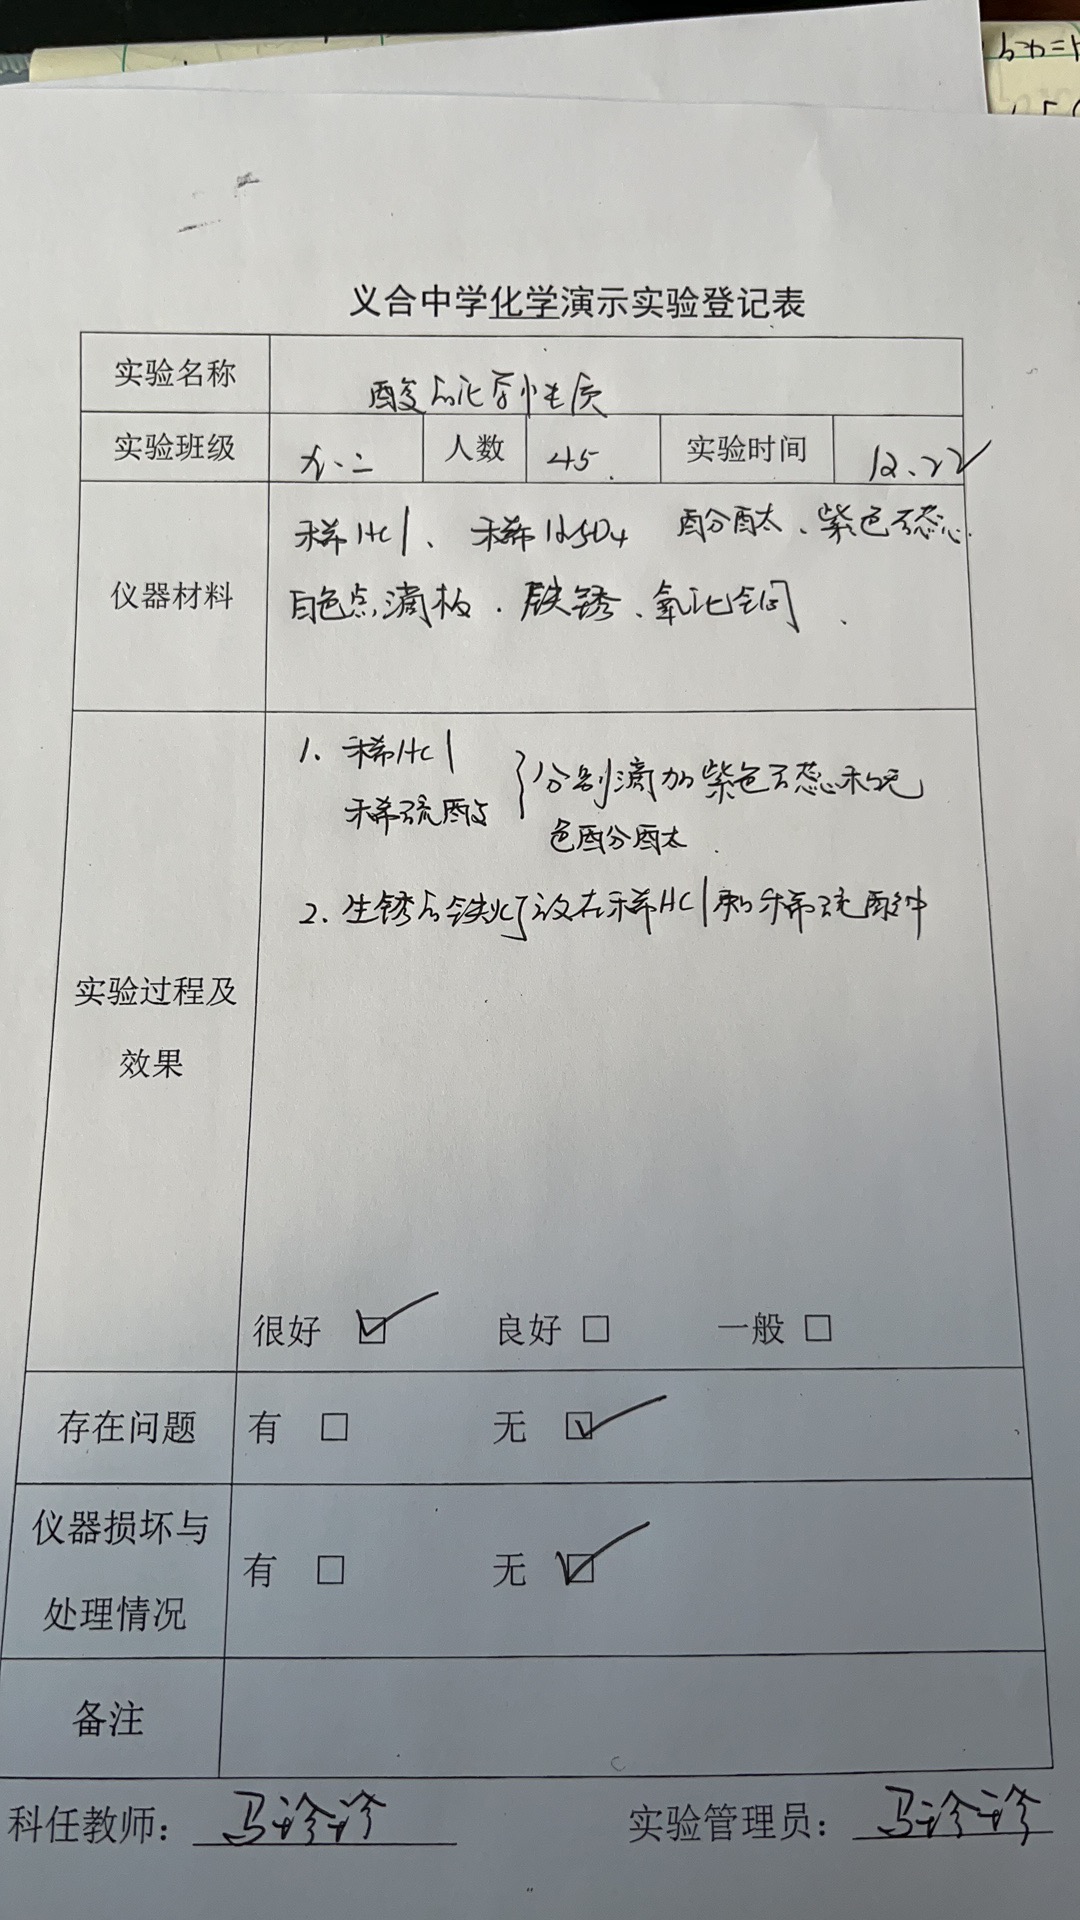 义合中学化学演示实验登记表
实验名称 酸的化学性质
实验班级 九.二 人数 45. 实验时间 12.22
仪器材料 稀HCl、稀H2SO4 酚酞、紫色石蕊.
白色点滴板.铁锈、氧化铜、
1. 稀HCl
稀硫酸 } 分别滴加紫色石蕊和无
色酚酞.
2. 生锈的铁钉放在稀HCl和稀硫酸中
实验过程及
效果
很好 ☑ 良好 □ 一般 □
存在问题 有 □ 无 ☑
仪器损坏与
处理情况 有 □ 无 ☑
备注
科任教师：马诊诊 实验管理员：马诊诊